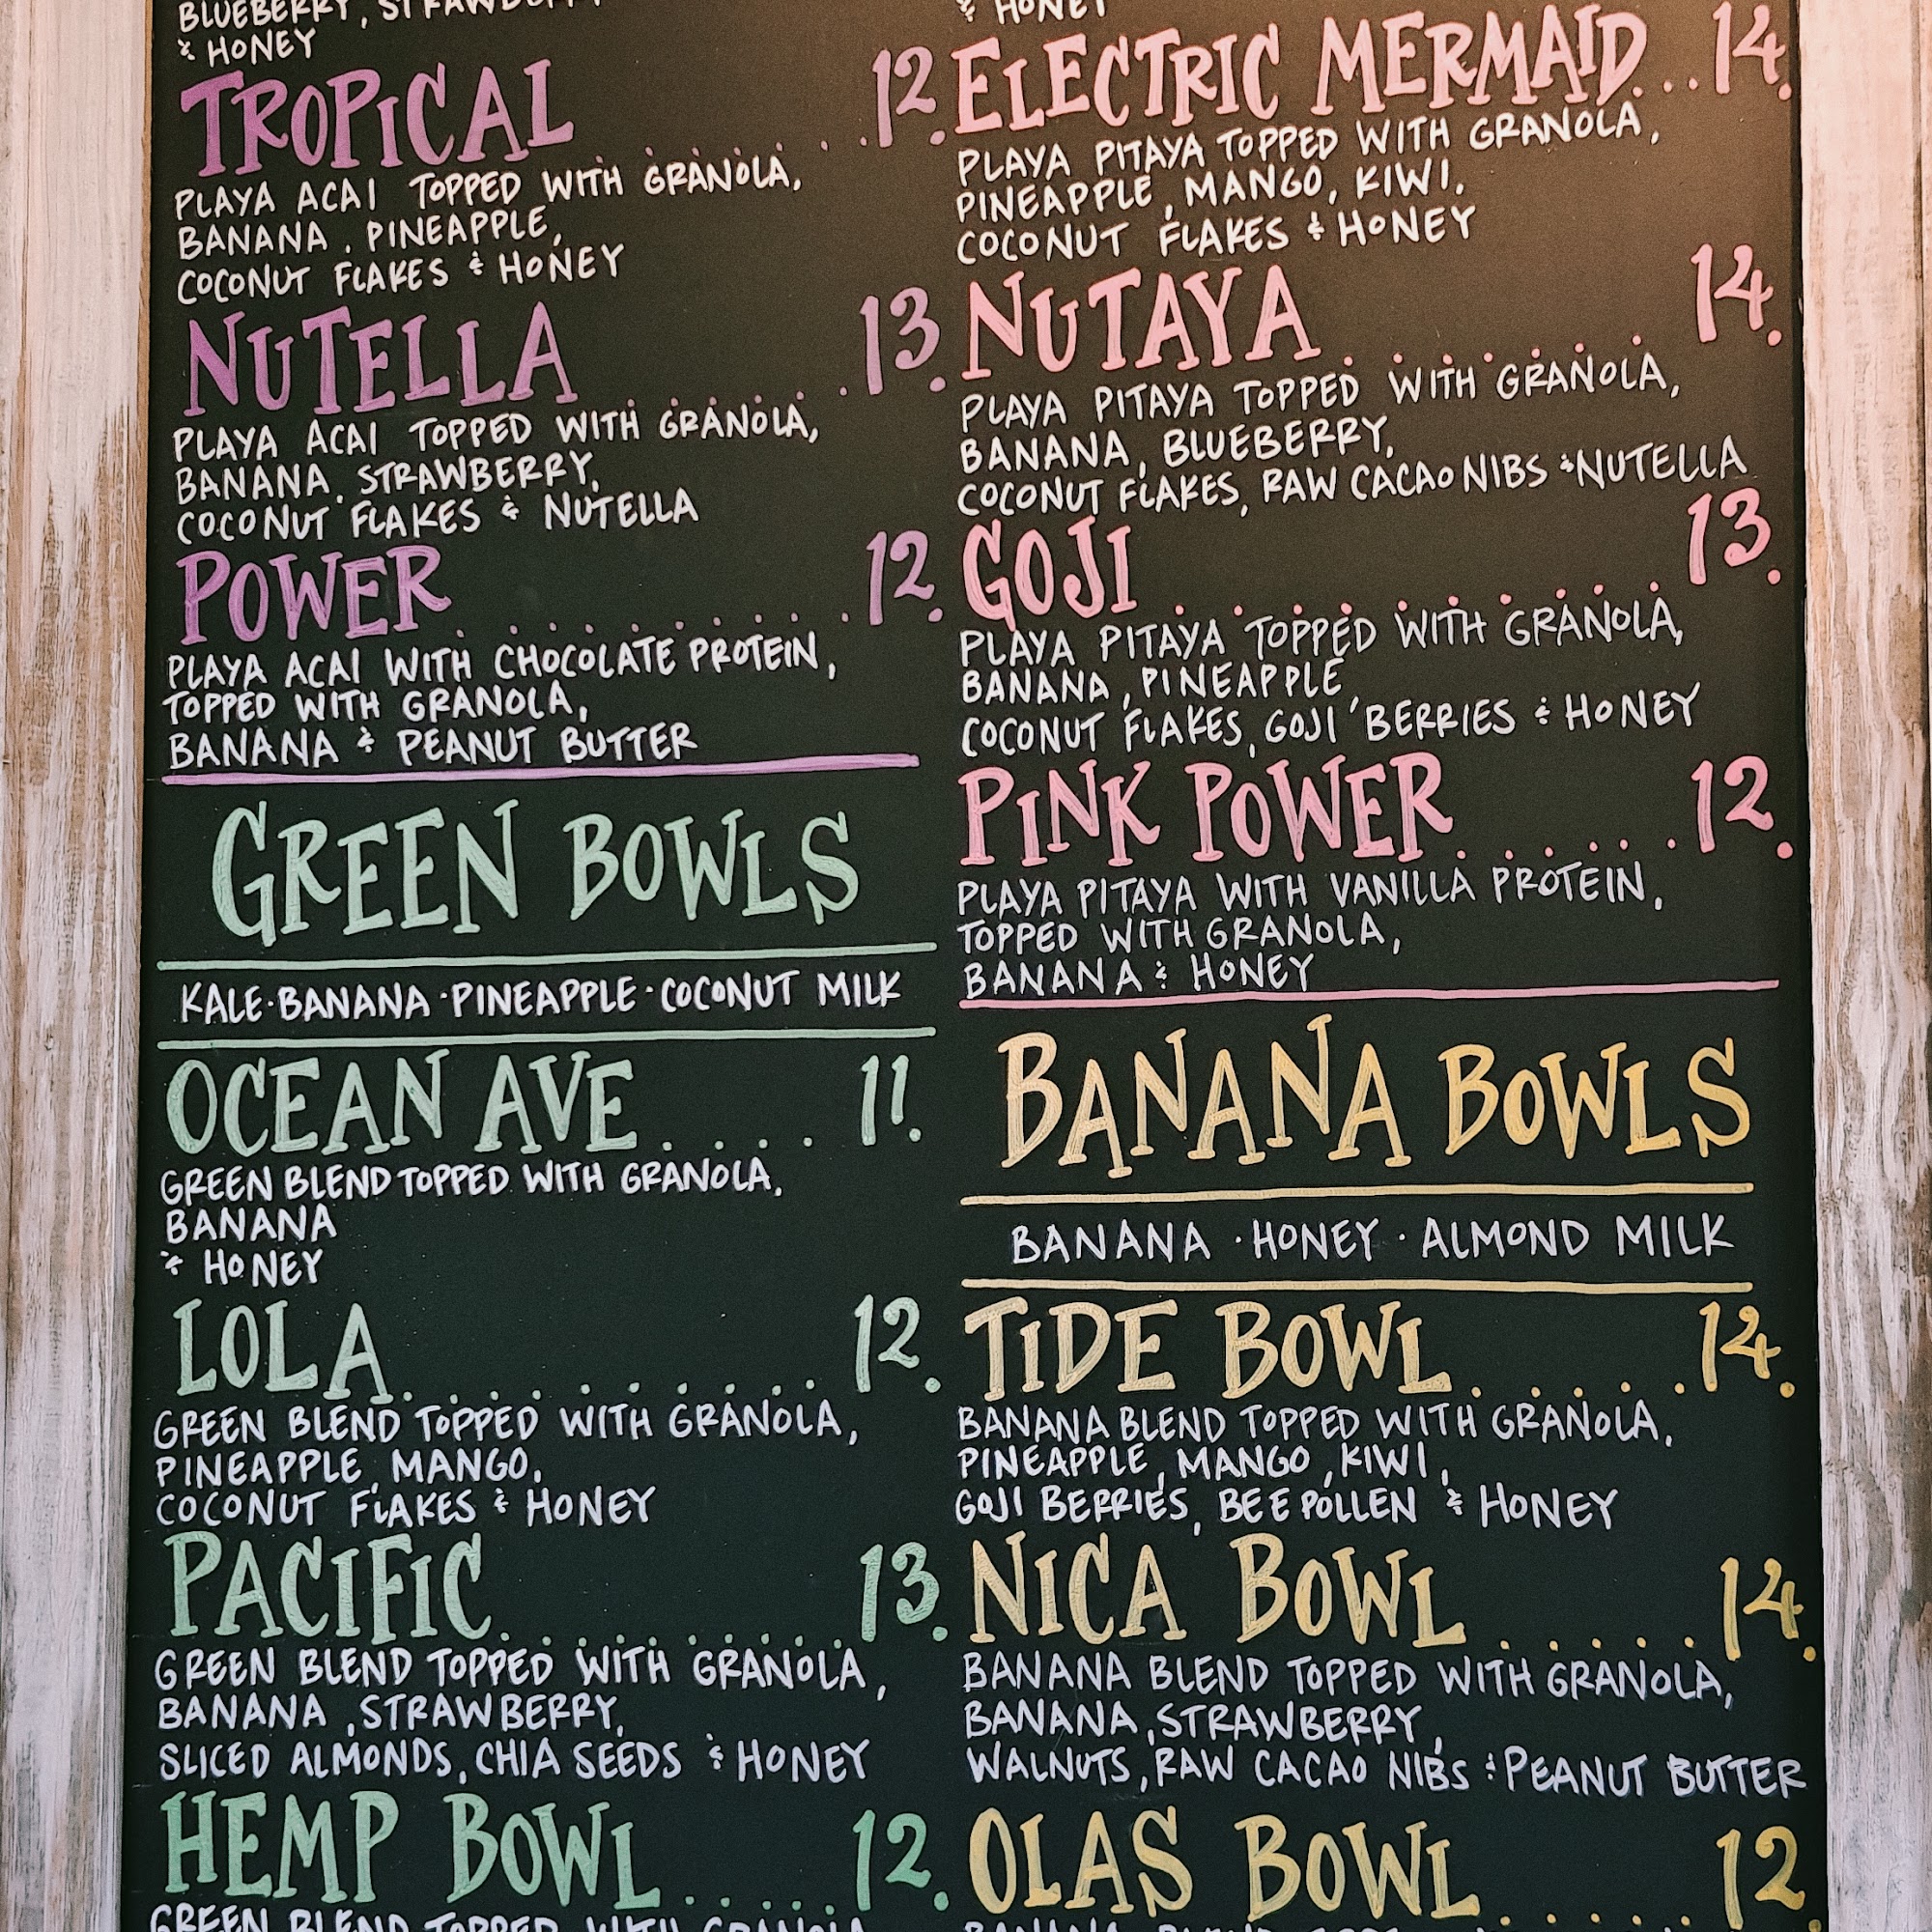 BLUEBERRY, STRAWBERRY
& HONEY
TROPICAL ... 12.
PLAYA ACAI TOPPED WITH GRANOLA,
BANANA, PINEAPPLE,
COCONUT FLAKES & HONEY
NUTELLA ... 13.
PLAYA ACAI TOPPED WITH GRANOLA,
BANANA, STRAWBERRY,
COCONUT FLAKES & NUTELLA
POWER ... 12.
PLAYA ACAI WITH CHOCOLATE PROTEIN,
TOPPED WITH GRANOLA,
BANANA & PEANUT BUTTER
GREEN BOWLS
KALE · BANANA · PINEAPPLE · COCONUT MILK
OCEAN AVE .... 11.
GREEN BLEND TOPPED WITH GRANOLA,
BANANA
& HONEY
LOLA ... 12.
GREEN BLEND TOPPED WITH GRANOLA,
PINEAPPLE, MANGO,
COCONUT FLAKES & HONEY
PACIFIC ... 13.
GREEN BLEND TOPPED WITH GRANOLA,
BANANA, STRAWBERRY,
SLICED ALMONDS, CHIA SEEDS & HONEY
HEMP BOWL ..... 12.
GREEN BLEND TOPPED WITH GRANOLA
& HONEY
ELECTRIC MERMAID... 14.
PLAYA PITAYA TOPPED WITH GRANOLA,
PINEAPPLE, MANGO, KIWI,
COCONUT FLAKES & HONEY
NUTAYA ... 14.
PLAYA PITAYA TOPPED WITH GRANOLA,
BANANA, BLUEBERRY,
COCONUT FLAKES, RAW CACAO NIBS & NUTELLA
GOJI ... 13.
PLAYA PITAYA TOPPED WITH GRANOLA,
BANANA, PINEAPPLE,
COCONUT FLAKES, GOJI BERRIES & HONEY
PINK POWER ...... 12.
PLAYA PITAYA WITH VANILLA PROTEIN,
TOPPED WITH GRANOLA,
BANANA & HONEY
BANANA BOWLS
BANANA · HONEY · ALMOND MILK
TIDE BOWL ...... 14.
BANANA BLEND TOPPED WITH GRANOLA,
PINEAPPLE, MANGO, KIWI,
GOJI BERRIES, BEE POLLEN & HONEY
NICA BOWL ..... 14.
BANANA BLEND TOPPED WITH GRANOLA,
BANANA, STRAWBERRY,
WALNUTS, RAW CACAO NIBS & PEANUT BUTTER
OLAS BOWL ..... 12.